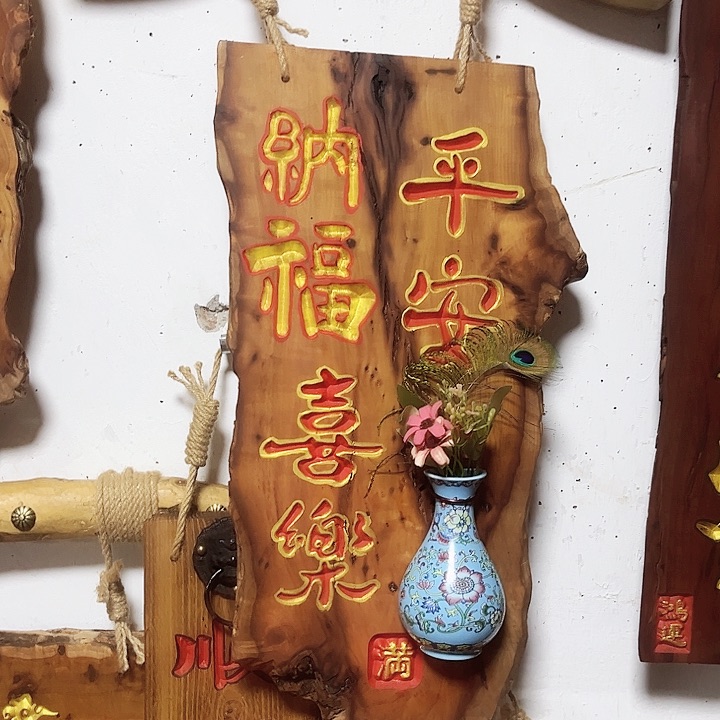 平安
納福
喜樂
满
順
鴻運